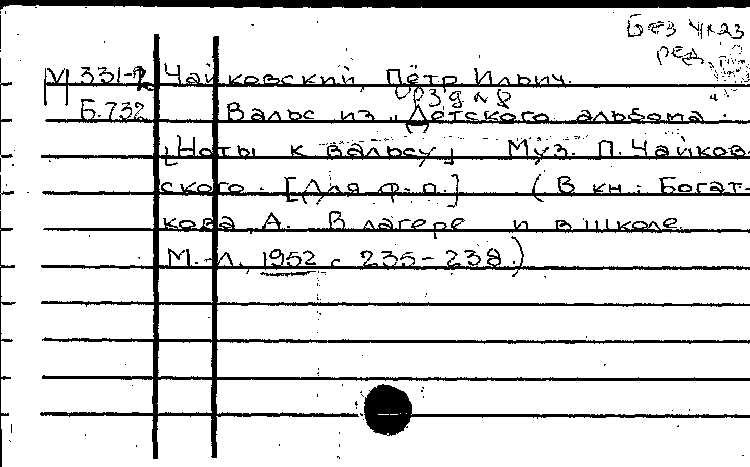 Без указ
ред.
М 331-2 Чайковский, Пётр Ильич.
ор 39 № 8
Б.732 Вальс из "Детского альбома".
[Ноты к вальсу] Муз. П. Чайков-
ского. [Для ф.-п.] (В кн.: Богат-
кова, А. В лагере и в школе.
М.-Л., 1952 с. 235-238.)